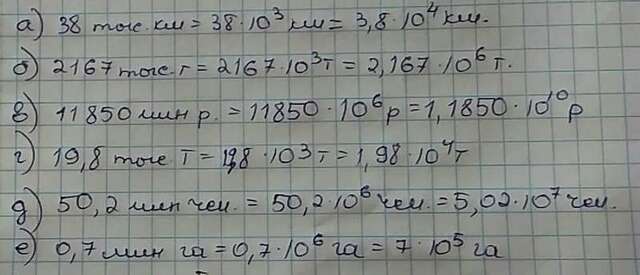 а) 38 тыс. км = 38·10³ км = 3,8·10⁴ км.
б) 2167 тыс. т = 2167·10³ т = 2,167·10⁶ т.
в) 11850 млн р. = 11850·10⁶ р = 1,1850·10¹⁰ р
г) 19,8 тыс т = 19,8·10³ т = 1,98·10⁴ т
д) 50,2 млн чел. = 50,2·10⁶ чел. = 5,02·10⁷ чел.
е) 0,7 млн га = 0,7·10⁶ га = 7·10⁵ га